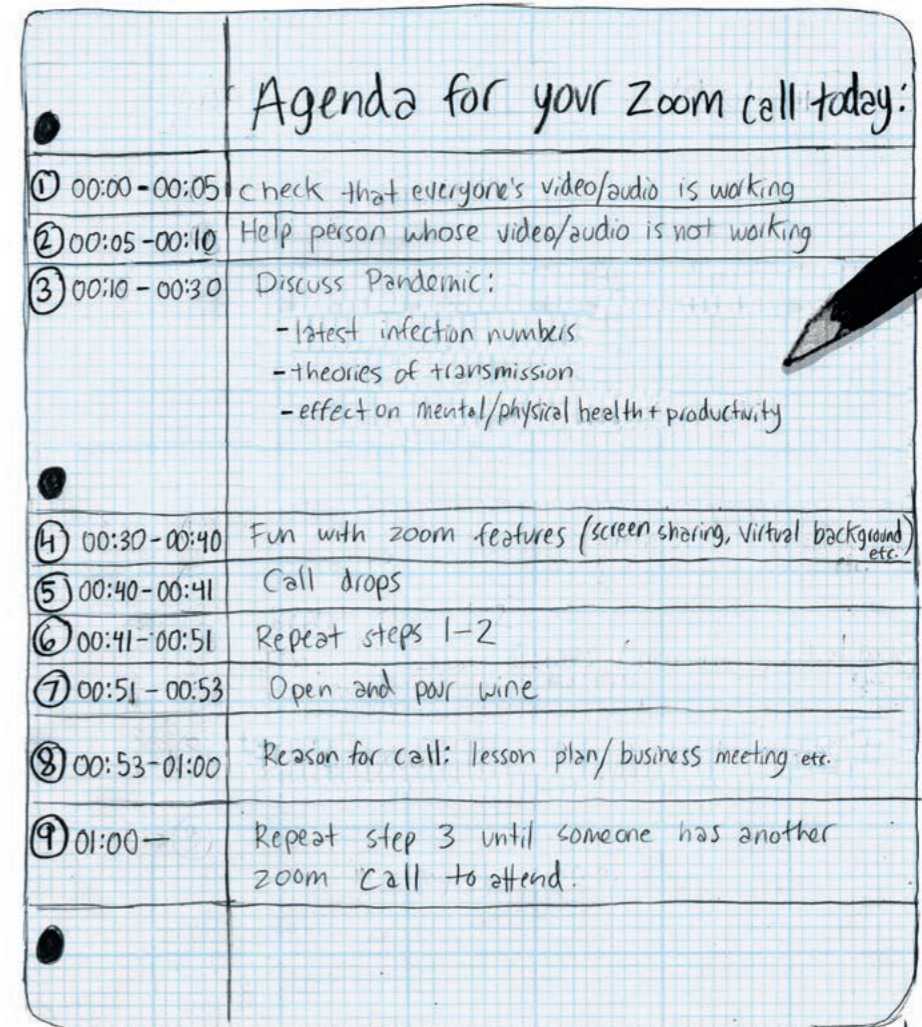 Agenda for your Zoom call today:
① 00:00-00:05 check that everyone's video/audio is working
② 00:05-00:10 Help person whose video/audio is not working
③ 00:10-00:30 Discuss Pandemic:
-latest infection numbers
-theories of transmission
-effect on mental/physical health + productivity
④ 00:30-00:40 Fun with zoom features (screen sharing, virtual background etc.)
⑤ 00:40-00:41 Call drops
⑥ 00:41-00:51 Repeat steps 1-2
⑦ 00:51-00:53 Open and pour wine
⑧ 00:53-01:00 Reason for call: lesson plan/business meeting etc.
⑨ 01:00— Repeat step 3 until someone has another
zoom call to attend.